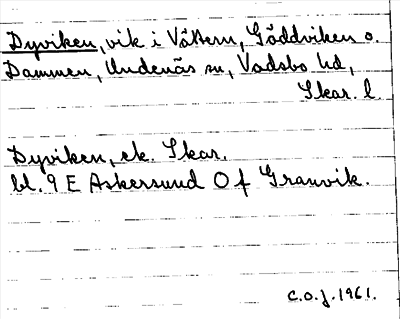 Dyviken, vik i Vättern, Gäddviken o.
Dammen, Undenäs sn, Vadsbo hd,
Skar. l.
Dyviken, ek. Skar.
bl. 9 E Askersund O f Granvik.
C.O.J. 1961.